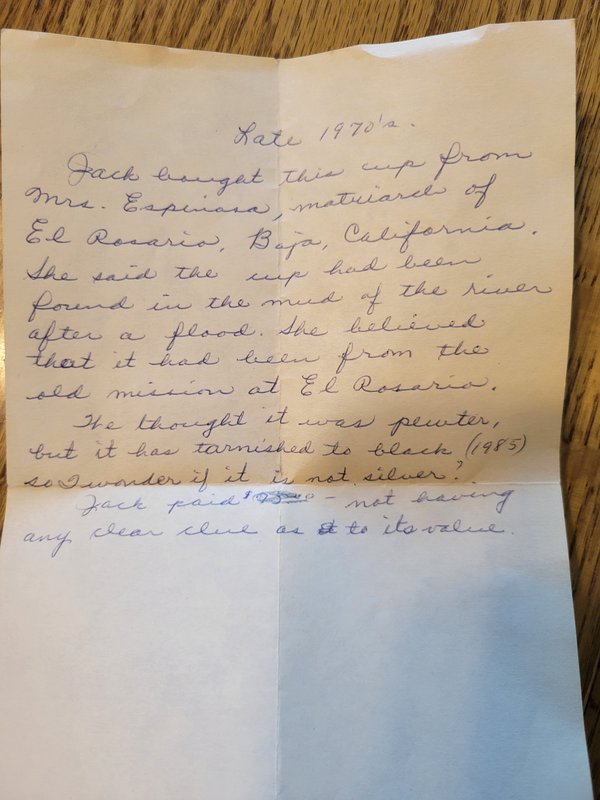 Late 1970's.
Jack bought this cup from
Mrs. Espinosa, matriarch of
El Rosario, Baja, California.
She said the cup had been
found in the mud of the river
after a flood. She believed
that it had been from the
old mission at El Rosario.
We thought it was pewter,
but it has tarnished to black (1985)
so I wonder if it is not silver?
Jack paid - not having
any clear clue as to its value.